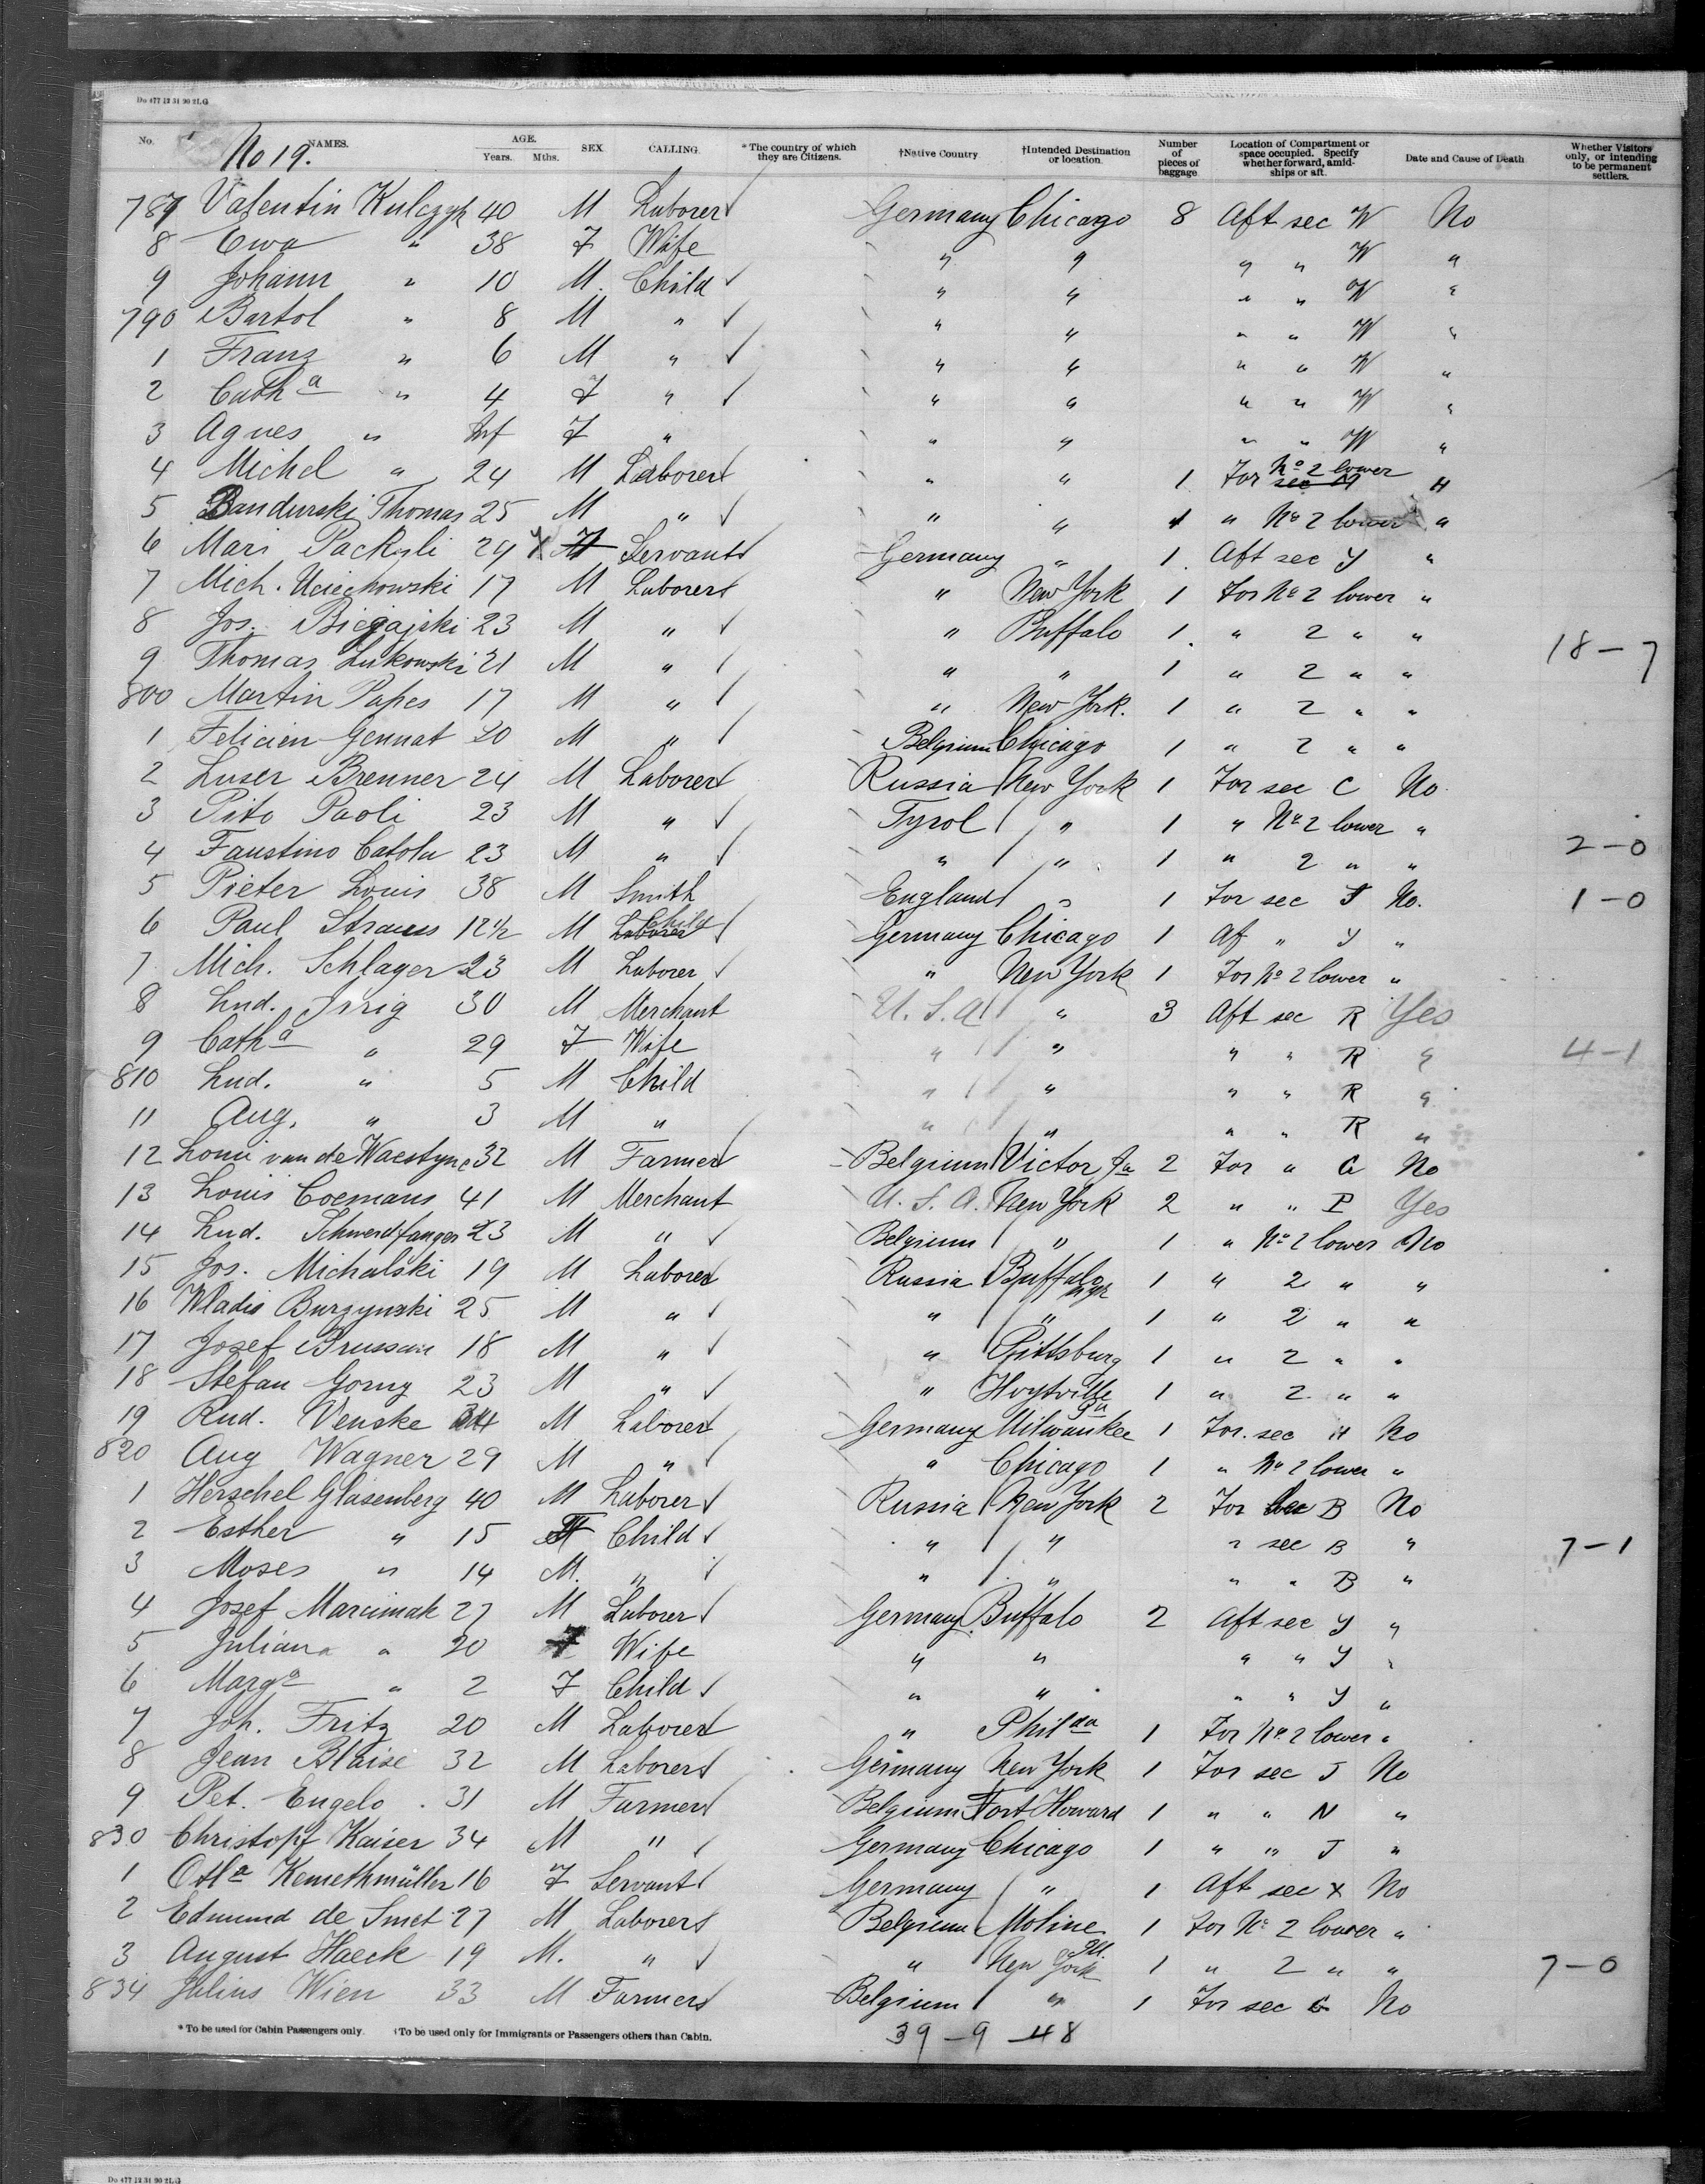 Do 477 12 31 90 2LG
No. NAMES. AGE. Years. Mths. SEX CALLING. *The country of which they are Citizens. †Native Country †Intended Destination or location. Number of pieces of baggage Location of Compartment or space occupied. Specify whether forward, amidships or aft. Date and Cause of Death Whether Visitors only, or intending to be permanent settlers.
No 19.
787 Valentin Kulczyk 40 M Laborer Germany Chicago 8 Aft sec W No
8 Ewa " 38 F Wife " " " " W "
9 Johann " 10 M. Child " " " " W "
790 Bartol " 8 M " " " " " W "
1 Franz " 6 M " " " " " W "
2 Cath a " 4 F " " " " " W "
3 Agnes " Inf F " " " " " W "
4 Michel " 24 M Laborer " " 1 For No 2 lower "
5 Bandurski Thomas 25 M " " " 1 " No 2 lower "
6 Mari Packyli 29 F Servant Germany " 1 Aft sec Y "
7 Mich. 17 M Laborer " New York 1 For No 2 lower "
8 Jos. Biegajski 23 M " " Buffalo 1 " 2 " "
9 Thomas Lukowski 21 M " " " 1 " 2 " " 18-7
800 Martin Papes 17 M " " New York. 1 " 2 " "
1 Felicien Gennat 20 M " Belgium Chicago 1 " 2 " "
2 Luser Brenner 24 M Laborer Russia New York 1 For sec C No
3 Pito Paoli 23 M " Tyrol " 1 " No 2 lower "
4 Faustino Catola 23 M " " " 1 " 2 " " 2-0
5 Pieter Louis 38 M Smith England " 1 For sec No. 1-0
6 Paul Strauss 12 1/2 M Child Germany Chicago 1 Af " Y "
7 Mich. Schlager 23 M Laborer " New York 1 For No 2 lower "
8 Lud. Irrig 30 M Merchant U.S.A. " 3 Aft sec R Yes
9 Cath a " 29 F Wife " " " " R " 4-1
810 Lud. " 5 M Child " " " " R "
11 Aug. " 3 M " " " " " R "
12 Louis van de Waestyne 32 M Farmer Belgium Victor Ja 2 For " G No
13 Louis Coemans 41 M Merchant U.S.A. New York 2 " " P Yes
14 Lud. Schwerdtfanger 23 M " Belgium " 1 " No 2 lower No
15 Jos. Michalski 19 M Laborer Russia Buffalo 1 " 2 " "
16 Wladis Burzynski 25 M " " " 1 " 2 " "
17 Josef 18 M " " Pittsburg 1 " 2 " "
18 Stefan Gorny 23 M " " Hoytville Pa 1 " 2 " "
19 Rud. Venske M Laborer Germany Milwaukee 1 For. sec H No
820 Aug Wagner 29 M " " Chicago 1 " No 2 lower "
1 Herschel Glasenberg 40 M Laborer Russia New York 2 For sec B No
2 Esther " 15 F Child " " " sec B " 7-1
3 Moses " 14 M. " " " " " B "
4 Josef Marcimak 27 M Laborer Germany Buffalo 2 Aft sec Y "
5 Juliana " 20 F Wife " " " " Y "
6 Marg a " 2 F Child " " " " Y "
7 Joh. Fritz 20 M Laborer " Philda 1 For No 2 lower "
8 Jean Blaise 32 M Laborer Germany New York 1 For sec J No
9 Pet. Engelo 31 M Farmer Belgium Fort Howard 1 " " N "
830 Christopf Kaiser 34 M " Germany Chicago 1 " " J "
1 Otl a Kemethmüller 16 F Servant Germany " 1 Aft sec X No
2 Edmund de Smet 27 M Laborer Belgium Moline Ill. 1 For No 2 lower "
3 August Haeck 19 M. " " New York 1 " 2 " " 7-0
834 Julius Wien 33 M Farmer Belgium " 1 For sec G No
*To be used for Cabin Passengers only. †To be used only for Immigrants or Passengers others than Cabin.
39-9-48
Do 477 12 31 90 2LG